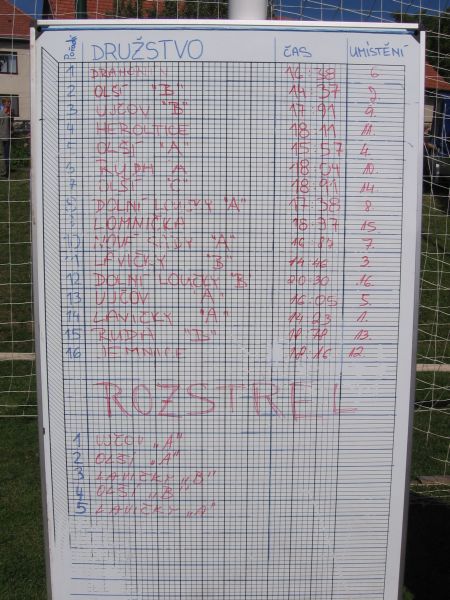 Pořadí DRUŽSTVO ČAS UMÍSTĚNÍ
1 DRAHONÍN 16:38 6.
2 OLŠÍ "B" 14:37 2.
3 UJČOV "B" 17:91 9.
4 HEROLTICE 18:11 11.
5 OLŠÍ "A" 15:57 4.
6 RUDA "A" 18:04 10.
7 OLŠÍ "C" 18:91 14.
8 DOLNÍ LOUČKY "A" 17:38 8.
9 LOMNIČKA 18:97 15.
10 NOVÉ "A" 16:87 7.
11 LAVIČKY "B" 14:46 3.
12 DOLNÍ LOUČKY "B 20:30 16.
13 UJČOV "A" 16:05 5.
14 LAVIČKY "A" 14:23 1.
15 RUDA "B" 18:78 13.
16 JEMNICE 18:16 12.
ROZSTŘEL
1 UJČOV „A"
2 OLŠÍ „A"
3 LAVIČKY „B"
4 OLŠÍ „B"
5 LAVIČKY „A"